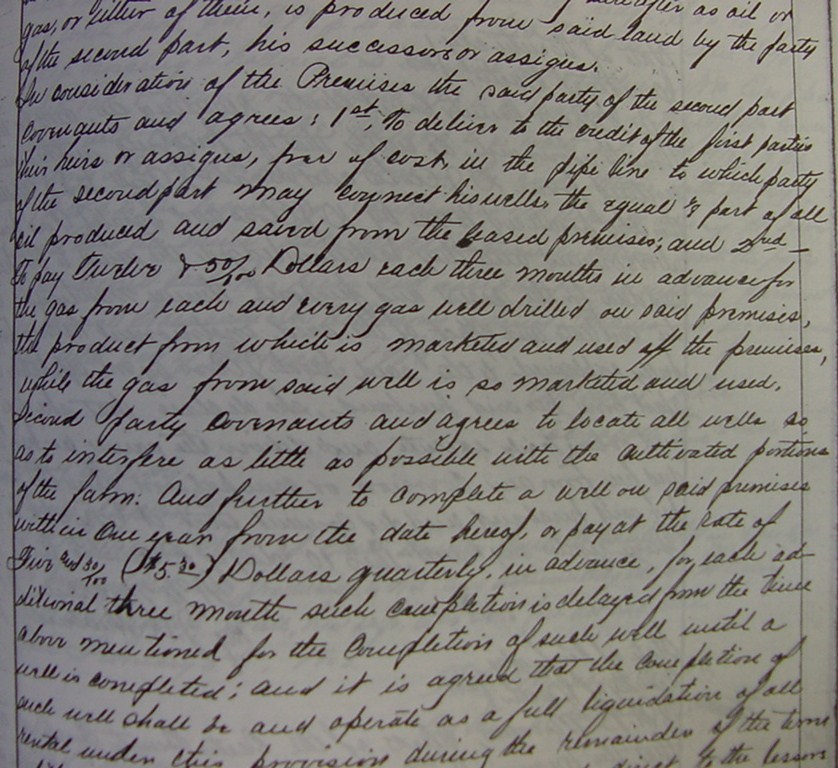 hereafter as oil or
gas, or either of them, is produced from said land by the party
of the second part, his successors or assigns.
In consideration of the Premises the said party of the second part
covenants and agrees: 1st, To deliver to the credit of the first parties
their heirs or assigns, free of cost, in the pipe line to which party
of the second part may connect his wells, the equal 1/8 part of all
oil produced and saved from the leased premises; and 2nd
To pay Twelve & 50/100 Dollars each three months in advance for
the gas from each and every gas well drilled on said premises,
the product from which is marketed and used off the premises,
while the gas from said well is so marketed and used.
Second party covenants and agrees to locate all wells so
as to interfere as little as possible with the cultivated portions
of the farm. And further to complete a well on said premises
within one year from the date hereof, or pay at the rate of
Five and 30/100 ($5.30) Dollars quarterly, in advance, for each ad-
ditional three month such completion is delayed from the time
above mentioned for the completion of such well until a
well is completed; and it is agreed that the completion of
such well shall be and operate as a full liquidation of all
rental under this provision during the remainder of the term
direct to the lessors